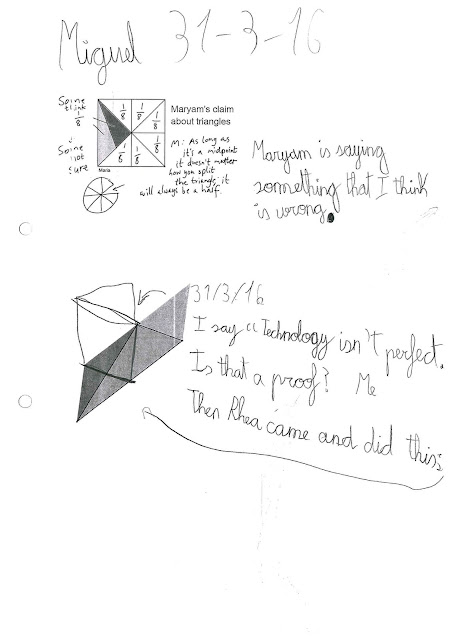 Miguel 31-3-16
Some
think
1/8
Some
not
sure
Maria
1/8
1/8
1/8
1/8
1/8
1/8
1/8
Maryam's claim
about triangles
M: As long as
it's a midpoint
it doesn't matter
how you split
the triangle, it
will always be a half.
Maryam is saying
something that I think
is wrong.
31/3/16
I say "Technology isn't perfect.
Is that a proof? Me
Then Rhea came and did this: